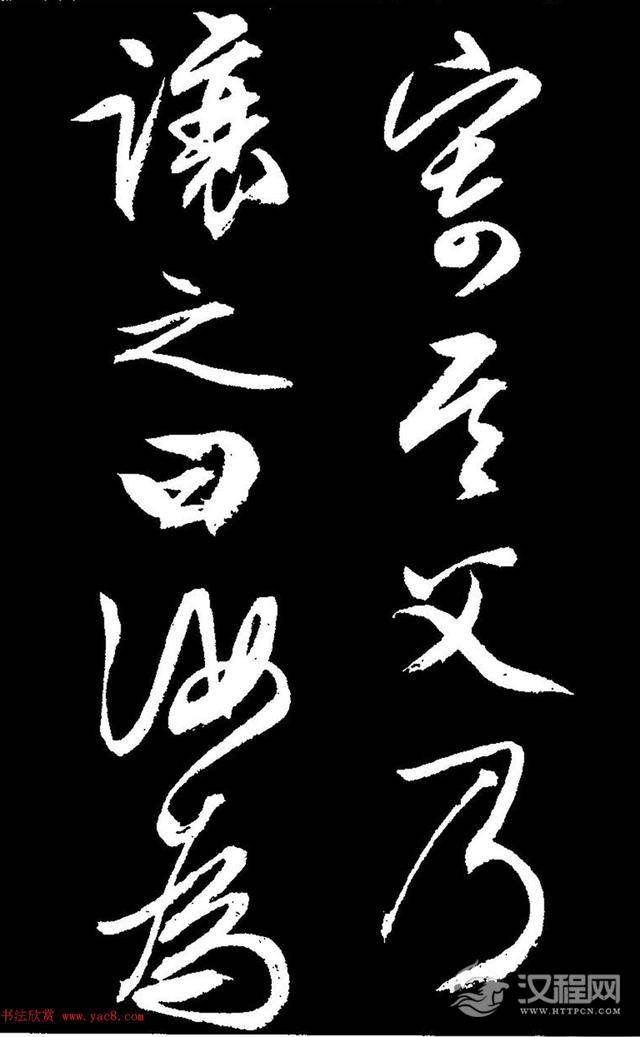 寄其父乃
讓之曰汝為
书法欣赏 www.yac8.com
汉程网
WWW.HTTPCN.COM